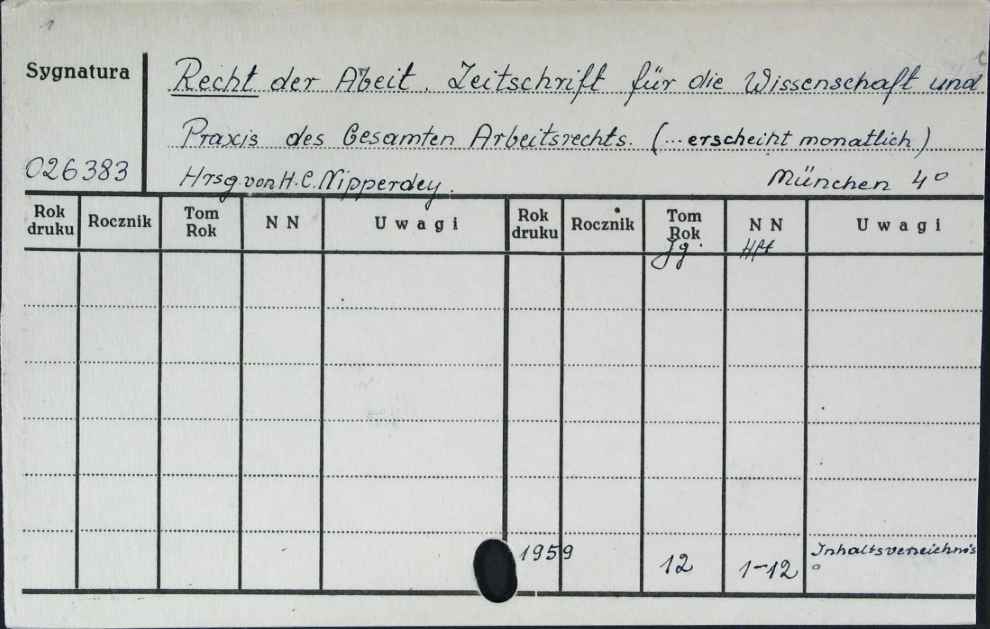 1
Sygnatura
Recht der Abeit. Zeitschrift für die Wissenschaft und
Praxis des Gesamten Arbeitsrechts. (...erscheint monatlich)
026383
Hrsg. von H.C. Nipperdey. München 4°
Rok druku Rocznik Tom Rok NN Uwagi Rok druku Rocznik Tom Rok NN Uwagi
Jg. Hft
1959 12 1-12 Inhaltsverzeichnis